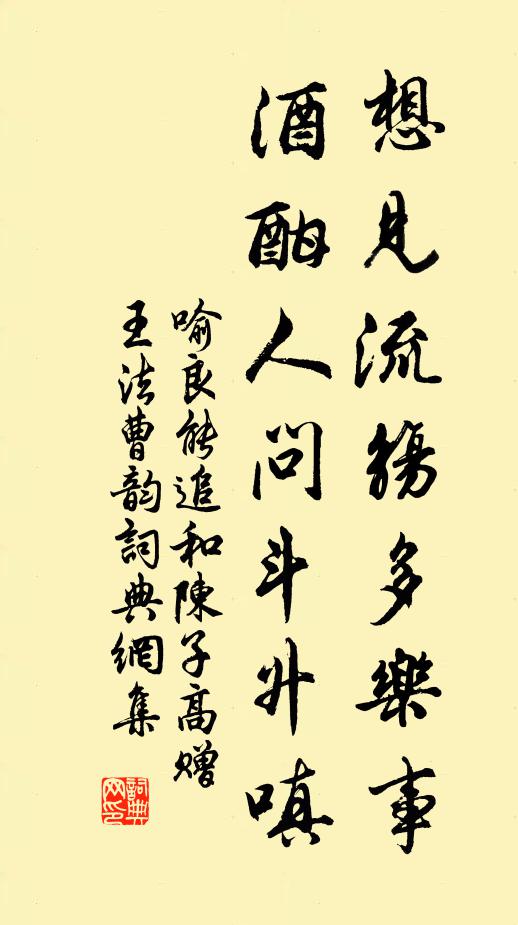 想見流觴多樂事
酒酣人問斗升嗔
喻良能追和陳子高贈
王法曹韵詞典網集
詞典網印